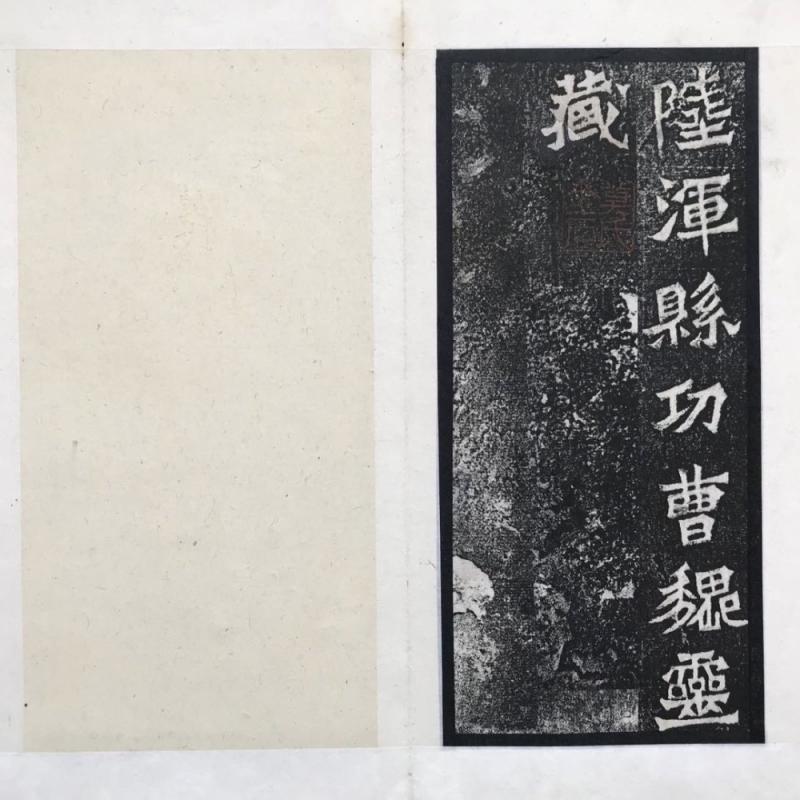 陸渾縣功曹魏靈
藏